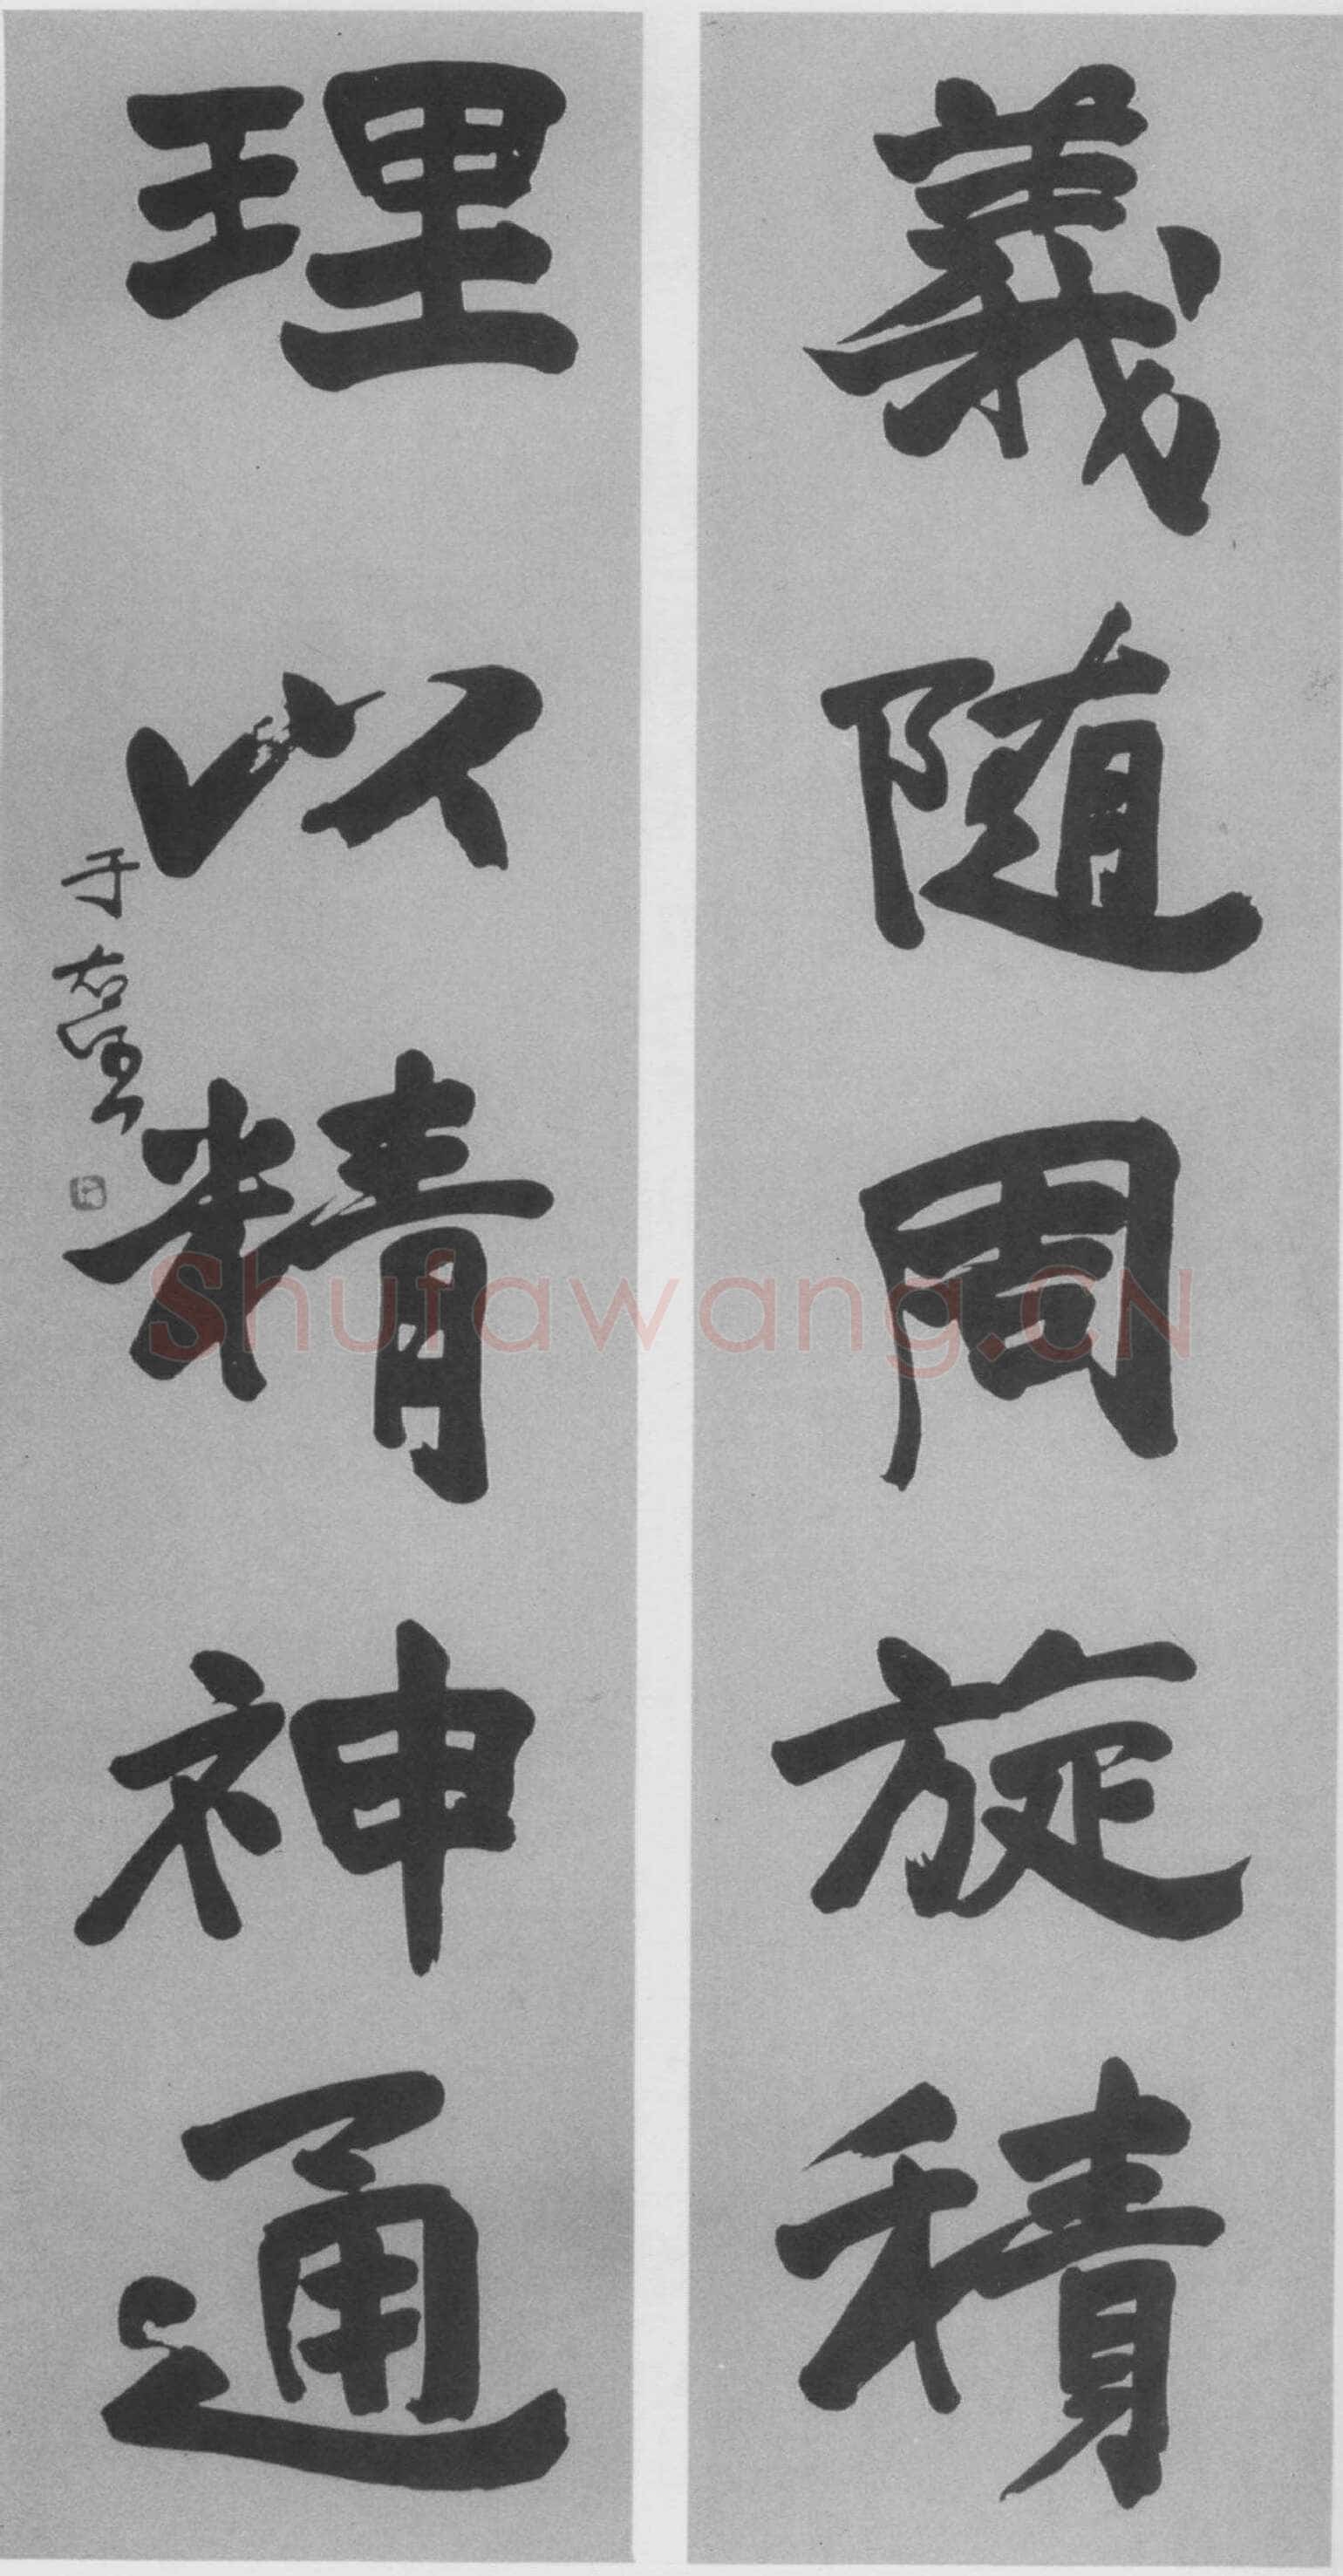 義随周旋積
理以精神通
于右任
Shufawang.CN